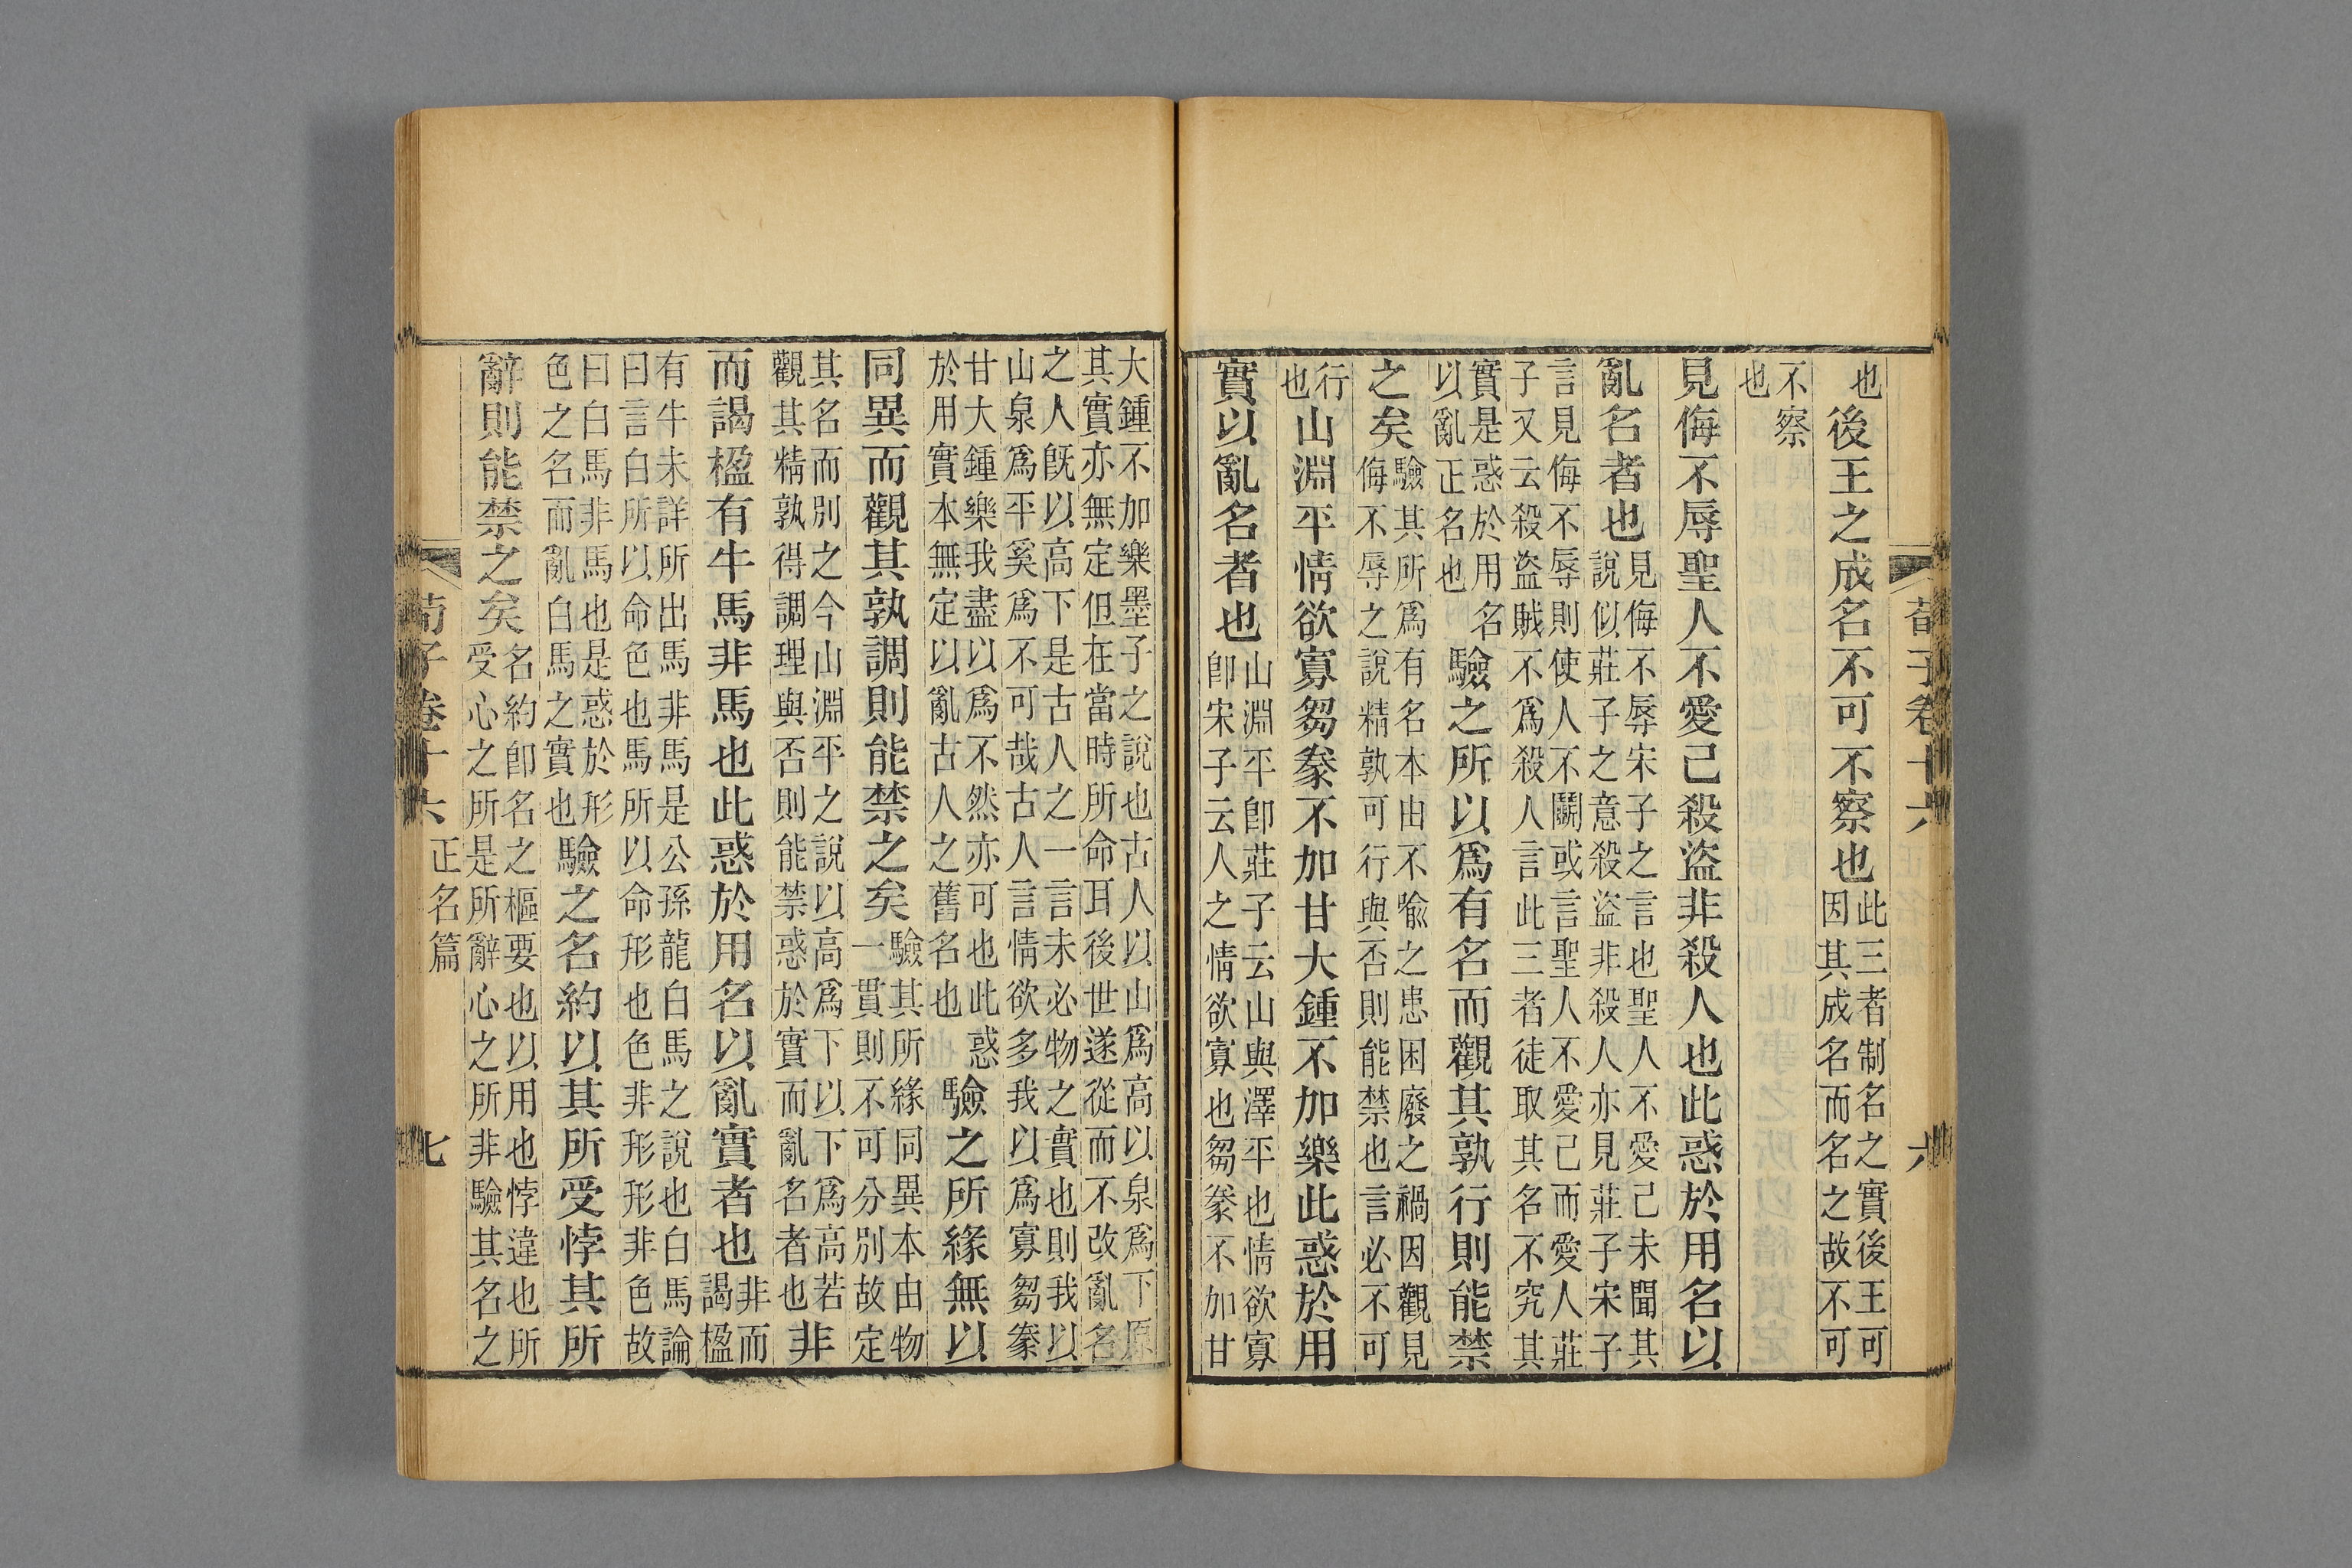 荀子卷十六
六
也
後王之成名不可不察也
此三者制名之實後王可
因其成名而名之故不可
不察
也
見侮不辱聖人不愛己殺盜非殺人也此惑於用名以
亂名者也
見侮不辱宋子之言也聖人不愛己未聞其
說似莊子之意殺盜非殺人亦見莊子宋子
言見侮不辱則使人不鬭或言聖人不愛己而愛人莊
子又云殺盜賊不爲殺人言此三者徒取其名不究其
實是惑於用名
以亂正名也
驗之所以爲有名而觀其孰行則能禁
之矣
驗其所爲有名本由不喻之患困廢之禍因觀見
侮不辱之說精孰可行與否則能禁也言必不可
行
也
山淵平情欲寡芻豢不加甘大鍾不加樂此惑於用
實以亂名者也
山淵平卽莊子云山與澤平也情欲寡
卽宋子云人之情欲寡也芻豢不加甘
大鍾不加樂墨子之說也古人以山爲高以泉爲下原
其實亦無定但在當時所命耳後世遂從而不改亂名
之人旣以高下是古人之一言未必物之實也則我以
山泉爲平奚爲不可哉古人言情欲多我以爲寡芻豢
甘大鍾樂我盡以爲不然亦可也此惑
於用實本無定以亂古人之舊名也
驗之所緣無以
同異而觀其孰調則能禁之矣
驗其所緣同異本由物
一貫則不可分別故定
其名而別之今山淵平之說以高爲下以下爲高若
觀其精孰得調理與否則能禁惑於實而亂名者也
非
而謁楹有牛馬非馬也此惑於用名以亂實者也
非而
謁楹
有牛未詳所出馬非馬是公孫龍白馬之說也白馬論
曰言白所以命色也馬所以命形也色非形形非色故
曰白馬非馬也是惑於形
色之名而亂白馬之實也
驗之名約以其所受悖其所
辭則能禁之矣
名約卽名之樞要也以用也悖違也所
受心之所是所辭心之所非驗其名之
荀子卷十六
正名篇
七